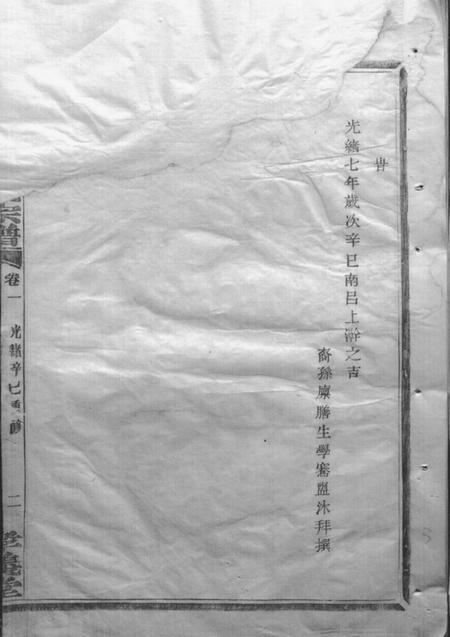 冑
光緒七年歲次辛巳南呂上澣之吉
裔孫廩膳生學騫盥沐拜撰
宗譜
卷一
光緒辛巳重修
二
堂